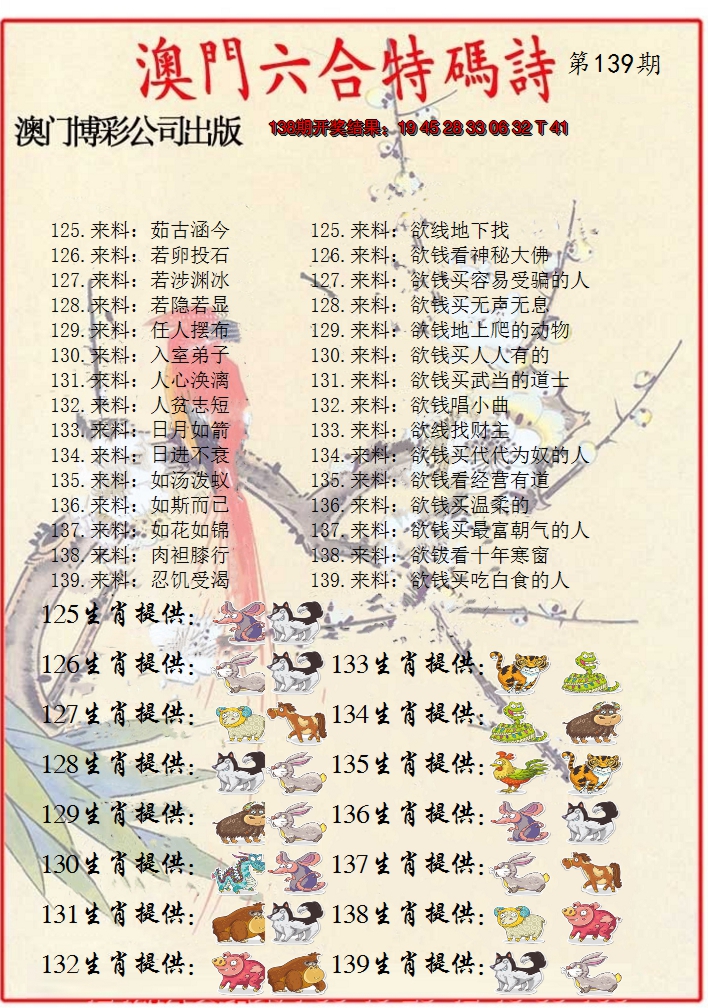 澳門六合特碼詩 第139期
澳门博彩公司出版 138期开奖结果：19 45 28 33 06 32 T 41
125.来料：茹古涵今 125.来料：欲线地下找
126.来料：若卵投石 126.来料：欲钱看神秘大佛
127.来料：若涉渊冰 127.来料：欲钱买容易受骗的人
128.来料：若隐若显 128.来料：欲钱买无声无息
129.来料：任人摆布 129.来料：欲钱地上爬的动物
130.来料：入室弟子 130.来料：欲钱买人人有的
131.来料：人心涣漓 131.来料：欲钱买武当的道士
132.来料：人贫志短 132.来料：欲钱唱小曲
133.来料：日月如箭 133.来料：欲线找财主
134.来料：日进不衰 134.来料：欲钱买代代为奴的人
135.来料：如汤泼蚁 135.来料：欲钱看经营有道
136.来料：如斯而已 136.来料：欲钱买温柔的
137.来料：如花如锦 137.来料：欲钱买最富朝气的人
138.来料：肉袒膝行 138.来料：欲钹看十年寒窗
139.来料：忍饥受渴 139.来料：欲钱买吃白食的人
125生肖提供：
126生肖提供： 133生肖提供：
127生肖提供： 134生肖提供：
128生肖提供： 135生肖提供：
129生肖提供： 136生肖提供：
130生肖提供： 137生肖提供：
131生肖提供： 138生肖提供：
132生肖提供： 139生肖提供：